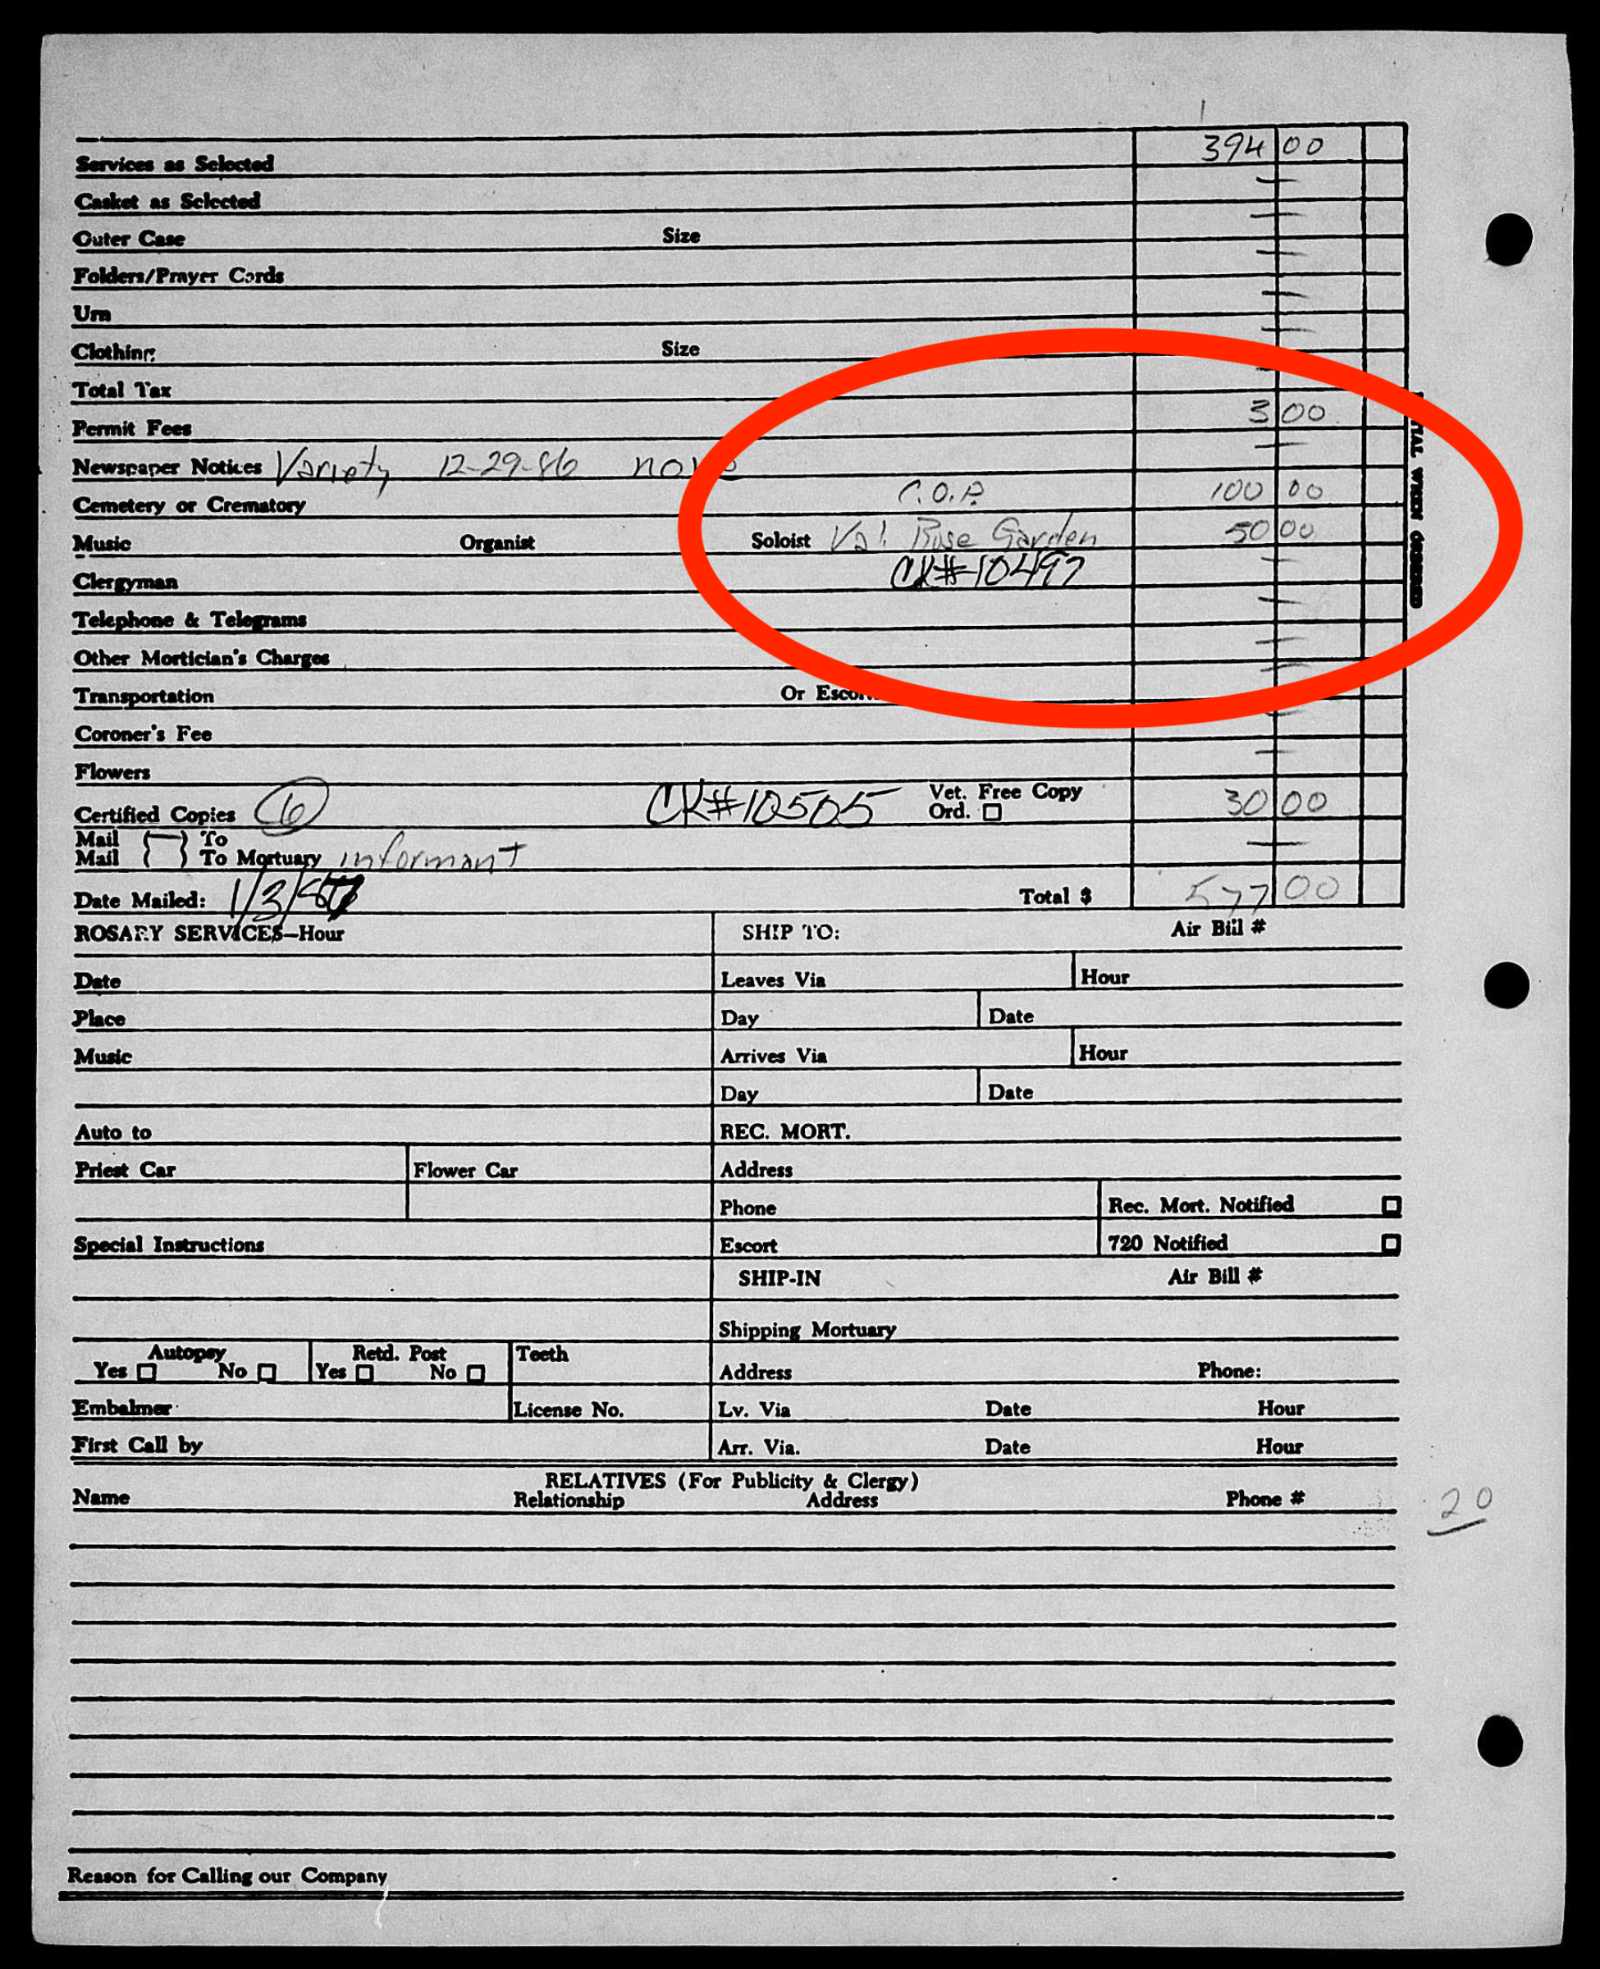 Services as Selected 394 00
Casket as Selected
Outer Case Size
Folders/Prayer Cards
Urn
Clothing Size
Total Tax
Permit Fees 3 00
Newspaper Notices Variety 12-29-86
Cemetery or Crematory 100 00
Music Organist Soloist Val. Rose Garden 50 00
Clergyman CK#10497
Telephone & Telegrams
Other Mortician's Charges
Transportation Or Escort
Coroner's Fee
Flowers
Certified Copies 6 CK#10505 Vet. Free Copy 30 00
Ord.
Mail To
Mail To Mortuary informant
Date Mailed: 1/3/87 Total $ 577 00
ROSARY SERVICES—Hour SHIP TO: Air Bill #
Date Leaves Via Hour
Place Day Date
Music Arrives Via Hour
Day Date
Auto to REC. MORT.
Priest Car Flower Car Address
Phone Rec. Mort. Notified
Special Instructions Escort 720 Notified
SHIP-IN Air Bill #
Shipping Mortuary
Autopsy Retd. Post Teeth
Yes No Yes No Address Phone:
Embalmer License No. Lv. Via Date Hour
First Call by Arr. Via. Date Hour
RELATIVES (For Publicity & Clergy)
Name Relationship Address Phone #
20
Reason for Calling our Company